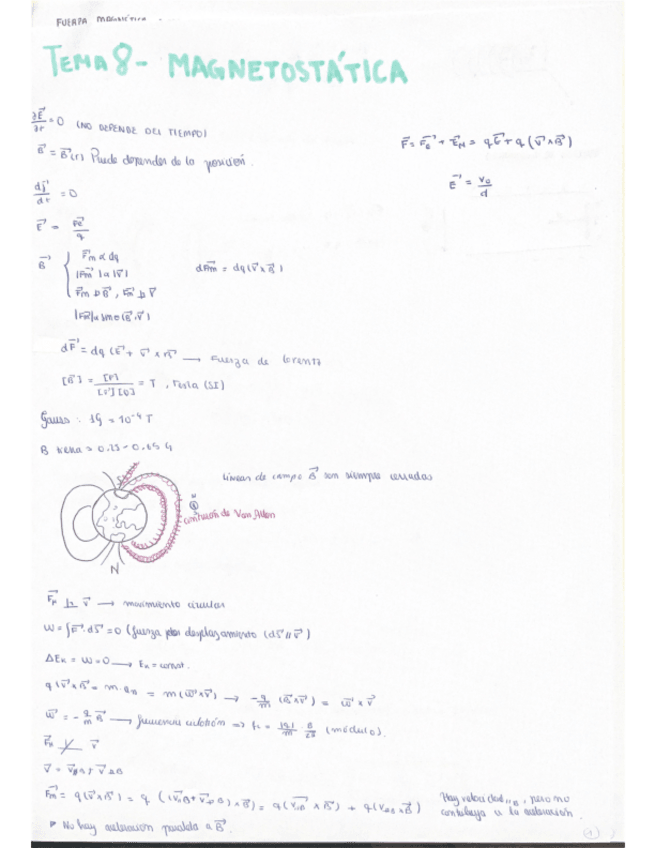 FUERZA MAGNÉTICA
TEMA 8 - MAGNETOSTÁTICA
= 0 (NO DEPENDE DEL TIEMPO)
B⃗ = B⃗(r) Puede depender de la posición.
F⃗ = F⃗e + F⃗m = qE⃗ + q(v⃗ x B⃗)
dj⃗/dt = 0
E⃗ = V0/d
E⃗ = F⃗e/q
B⃗ { F⃗m α dq
|F⃗m| α |v⃗|
dF⃗m = dq(v⃗ x B⃗)
F⃗m ⊥ B⃗, F⃗m ⊥ v⃗
|F⃗m| α senθ(B⃗,v⃗)
dF⃗ = dq(E⃗ + v⃗ x B⃗ → Fuerza de Lorentz
[B⃗] = [F]/[I][L] = T, Tesla (SI)
Gauss: 1G = 10⁻⁴ T
B
Líneas de campo B⃗ son siempre cerradas
Cinturón de Van Allen
N
⊥ v⃗ → movimiento circular
W = ∫F⃗·dS⃗ = 0 (fuerza desplazamiento (dS⃗ // v⃗)
ΔEk = W = 0 → Ek = const.
q(v⃗ x B⃗) = m·a = m(w⃗ x v⃗) → -q/m (B⃗ x v⃗) = w⃗ x v⃗
w⃗ = -q/m B⃗ → frecuencia ciclotrón ⇒ fc = |q|/m · B/2π (módulo).
v⃗
F⃗m = q(v⃗ x B⃗) = q((v⃗∥B + v⃗⊥B) x B⃗) = q(v⃗∥B x B⃗) + q(v⃗⊥B x B⃗)
Hay velocidad ∥B, pero no
contribuye a la aceleración.
No hay aceleración paralela a B⃗.
1